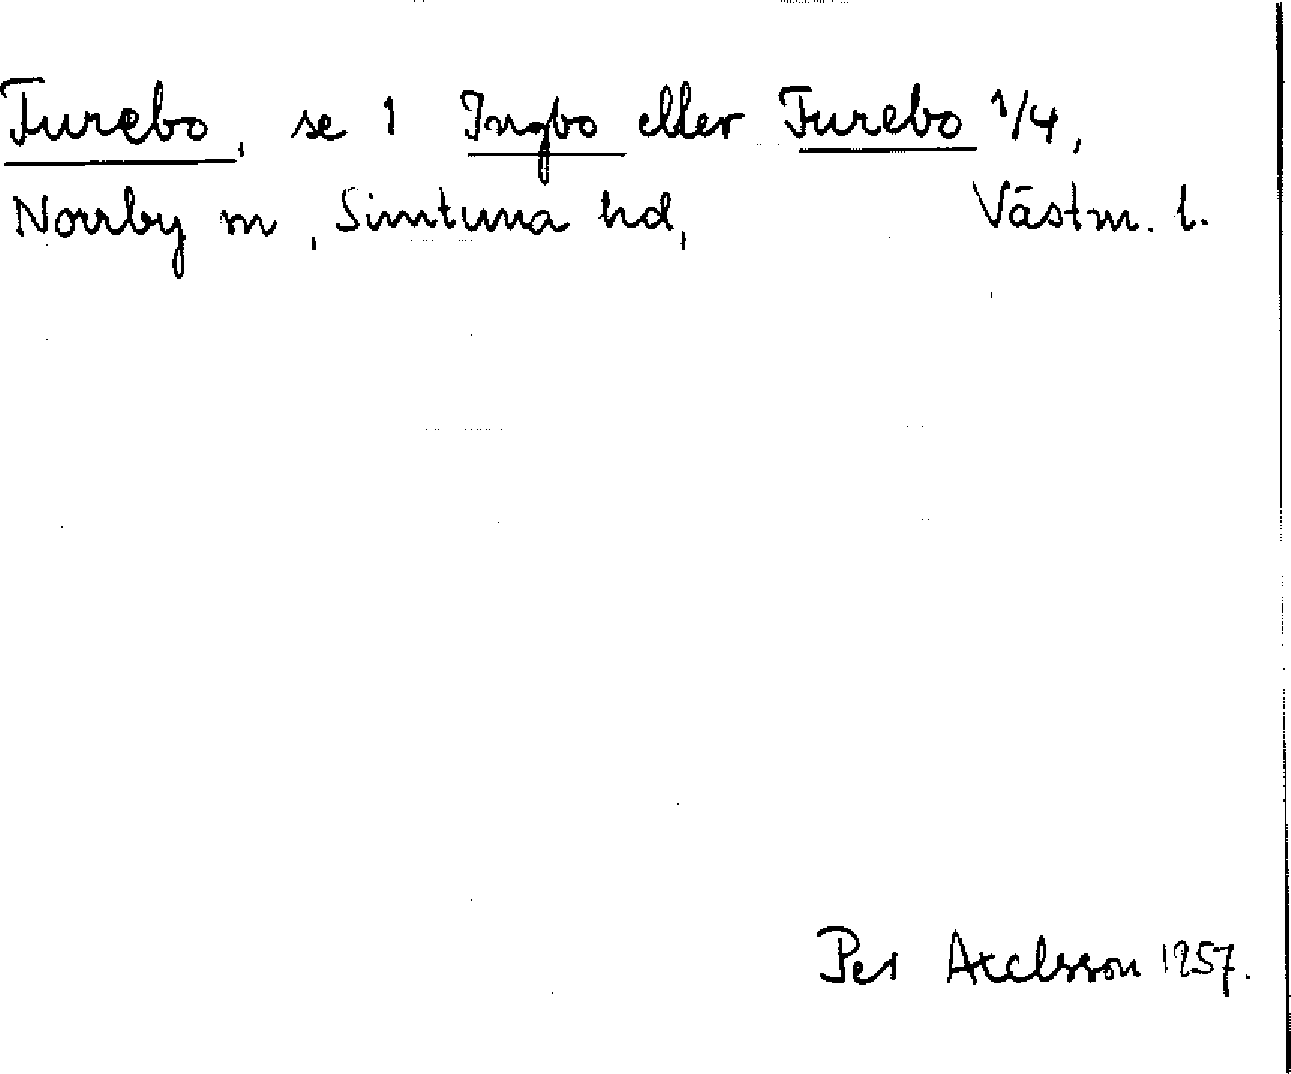 Turebo, se 1 Ingbo eller Turebo 1/4,
Norrby sn, Simtuna hd, Västm. l.
Per Axelsson 1957.